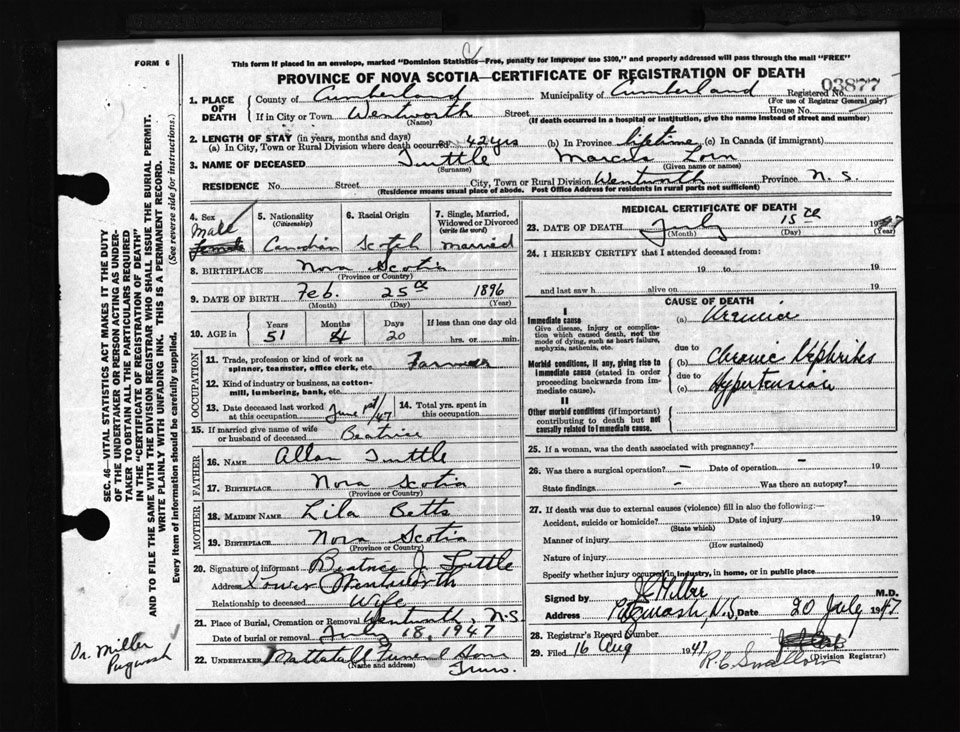 FORM 6
This form if placed in an envelope, marked "Dominion Statistics—Free, penalty for improper use $300," and properly addressed will pass through the mail "FREE"
PROVINCE OF NOVA SCOTIA—CERTIFICATE OF REGISTRATION OF DEATH
03877
1. PLACE OF DEATH County of Cumberland Municipality of Cumberland Registered No.
(For use of Registrar General only)
If in City or Town Wentworth Street House No.
(Name) (If death occurred in a hospital or institution, give the name instead of street and number)
2. LENGTH OF STAY (in years, months and days)
(a) In City, Town or Rural Division where death occurred 42 yrs (b) In Province lifetime (c) In Canada (if immigrant)
3. NAME OF DECEASED Tuttle Marcus
(Surname) (Given name or names)
RESIDENCE No. Street City, Town or Rural Division Wentworth Province N. S.
(Residence means usual place of abode. Post Office Address for residents in rural parts not sufficient)
4. Sex Male
5. Nationality (Citizenship) Canadian
6. Racial Origin Scotch
7. Single, Married, Widowed or Divorced (write the word) Married
8. BIRTHPLACE Nova Scotia
(Province or Country)
9. DATE OF BIRTH Feb. 25 1896
(Month) (Day) (Year)
10. AGE in Years Months Days If less than one day old
51 4 20 hrs. or min.
OCCUPATION
11. Trade, profession or kind of work as spinner, teamster, office clerk, etc. Farmer
12. Kind of industry or business, as cotton-mill, lumbering, bank, etc.
13. Date deceased last worked at this occupation June 1st/47
14. Total yrs. spent in this occupation
15. If married give name of wife or husband of deceased Beatrice
FATHER
16. NAME Allan Tuttle
17. BIRTHPLACE Nova Scotia
(Province or Country)
MOTHER
18. MAIDEN NAME Lila Betts
19. BIRTHPLACE Nova Scotia
(Province or Country)
20. Signature of informant Beatrice J. Tuttle
Address Lower Wentworth
Relationship to deceased Wife
21. Place of Burial, Cremation or Removal Wentworth, N.S.
Date of burial or removal July 18, 1947
22. UNDERTAKER Mattatall Funeral Home
(Name and address) Truro.
MEDICAL CERTIFICATE OF DEATH
23. DATE OF DEATH July 15 1947
(Month) (Day) (Year)
24. I HEREBY CERTIFY that I attended deceased from
19 to 19
and last saw h alive on 19
CAUSE OF DEATH
I
Immediate cause (a) Uremia
Give disease, injury or complication which caused death, not the mode of dying, such as heart failure, asphyxia, asthenia, etc.
due to
Morbid conditions, if any, giving rise to immediate cause (stated in order proceeding backwards from immediate cause). (b) Chronic Nephritis
due to
(c) Hypertension
II
Other morbid conditions (if important) contributing to death but not causally related to immediate cause.
25. If a woman, was the death associated with pregnancy?
26. Was there a surgical operation? – Date of operation – 19
State findings – Was there an autopsy?
27. If death was due to external causes (violence) fill in also the following:—
Accident, suicide or homicide? Date of injury 19
(State which)
Manner of injury
(How sustained)
Nature of injury
Specify whether injury occurred in industry, in home, or in public place
Signed by Miller M.D.
Address Pugwash, N.S. Date 20 July 1947
28. Registrar's Record Number
29. Filed 16 Aug 1947
(Division Registrar)
SEC. 46—VITAL STATISTICS ACT MAKES IT THE DUTY
OF THE UNDERTAKER OR PERSON ACTING AS UNDER-
TAKER TO OBTAIN ALL THE PARTICULARS REQUIRED
IN THE "CERTIFICATE OF REGISTRATION OF DEATH"
AND TO FILE THE SAME WITH THE DIVISION REGISTRAR WHO SHALL ISSUE THE BURIAL PERMIT.
WRITE PLAINLY WITH UNFADING INK. THIS IS A PERMANENT RECORD.
Every item of information should be carefully supplied. (See reverse side for instructions.)
Dr. Miller
Pugwash